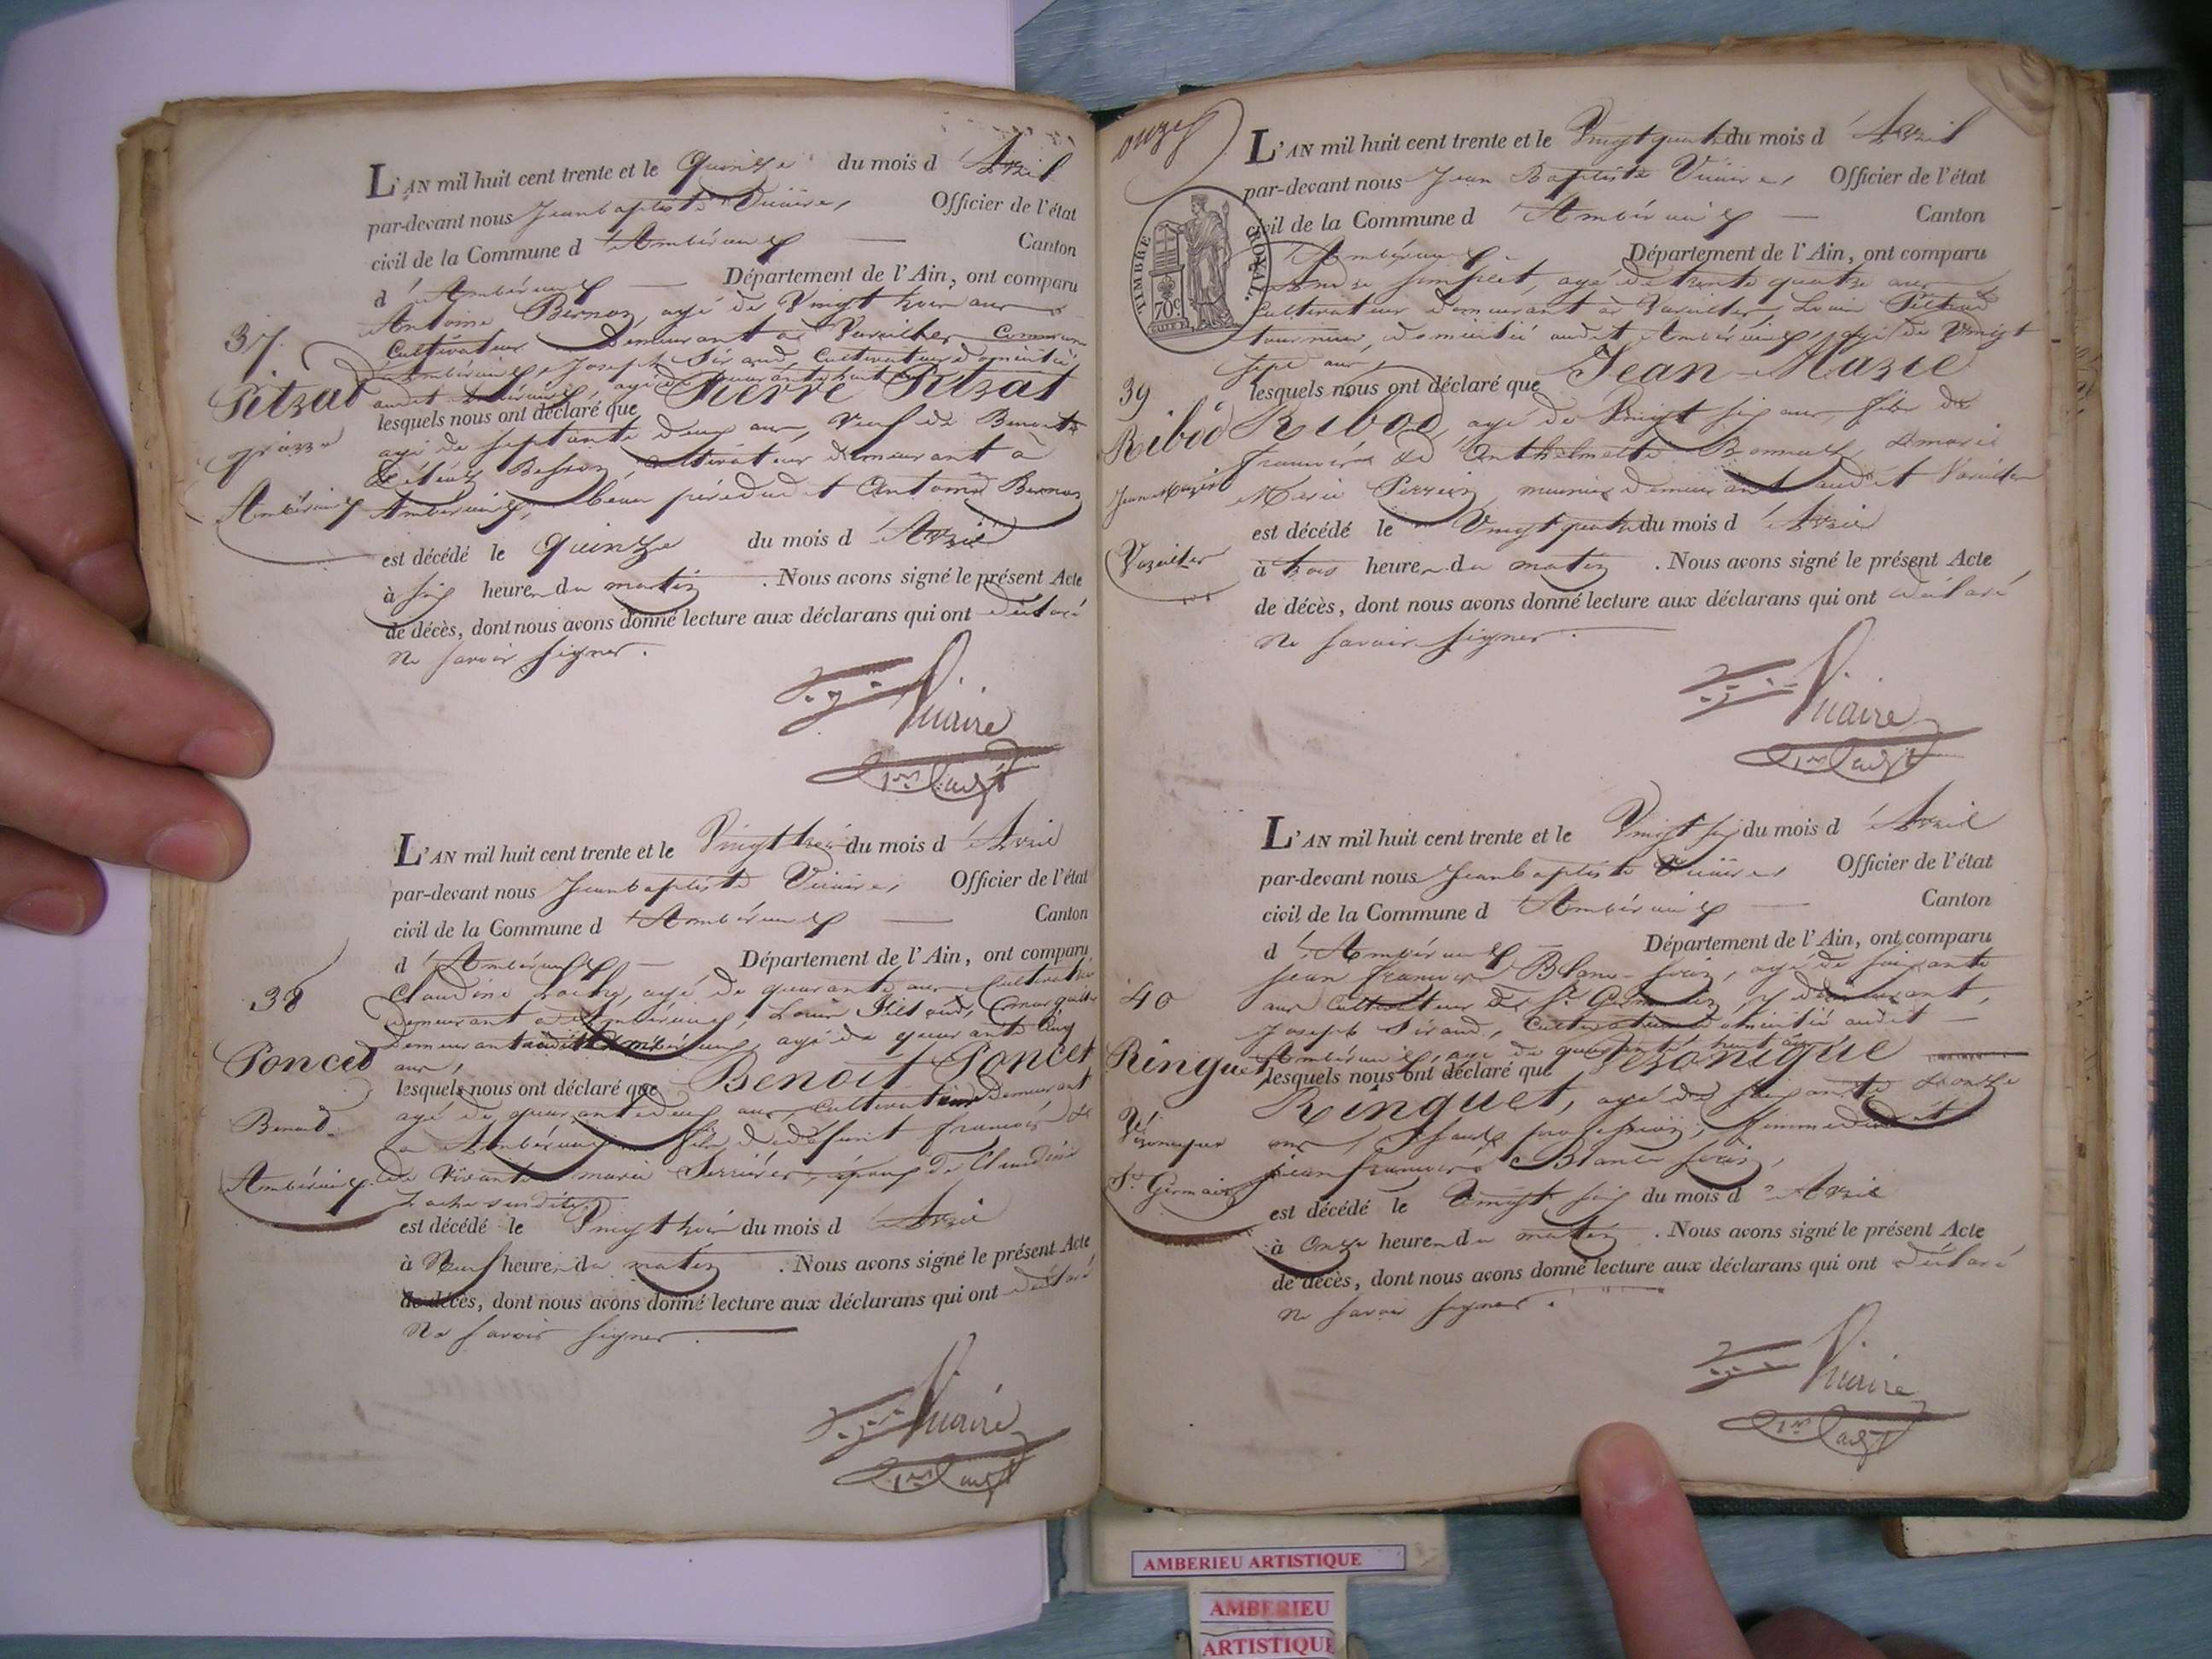 L'AN mil huit cent trente et le Quinze du mois d'Avril
par-devant nous Jean baptiste Vicaire, Officier de l'état
civil de la Commune d'Ambérieux — Canton
d'Ambérieux — Département de l'Ain, ont comparu
Antoine Bernoz, agé de Vingt trois ans
Cultivateur Demeurant à Vareilles Commune
d'Ambérieux, Joseph Siraud, Cultivateur domicilié
audit Ambérieux, agé de quarante huit ans
37
Pitrat
pierre
Ambérieux
lesquels nous ont déclaré que Pierre Pitrat
agé de septante deux ans, Veuf de Benoite
Besson, cultivateur demeurant à
Ambérieux, beau père dudit Antoine Bernoz
est décédé le Quinze du mois d'Avril
à six heures du matin . Nous avons signé le présent Acte
de décès, dont nous avons donné lecture aux déclarans qui ont déclaré
Ne savoir signer.
Vicaire
L'AN mil huit cent trente et le Vingt trois du mois d'Avril
par-devant nous Jean baptiste Vicaire, Officier de l'état
civil de la Commune d'Ambérieux — Canton
d'Ambérieux — Département de l'Ain, ont comparu
Claudine, agé de quarante ans Cultivatrice
demeurant à Ambérieux, Louis
Demeurant audit Ambérieux, agé de quarante cinq
ans,
38
Poncet
Benoit
Ambérieux
lesquels nous ont déclaré que Benoît Poncet
agé de quarante deux ans, Cultivateur Demeurant
à Ambérieux fils de défunt françois &
de vivante marie Perrier, époux de Claudine
susdite,
est décédé le Vingt trois du mois d'Avril
à Neuf heures du matin . Nous avons signé le présent Acte
de décès, dont nous avons donné lecture aux déclarans qui ont déclaré
Ne savoir signer.
Vicaire
TIMBRE ROYAL.
70c
L'AN mil huit cent trente et le Vingt quatre du mois d'Avril
par-devant nous Jean Baptiste Vicaire, Officier de l'état
civil de la Commune d'Ambérieux — Canton
d'Ambérieux Département de l'Ain, ont comparu
agé de trente quatre ans
Cultivateur demeurant à Vareilles, Louis
tourneur, domicilié audit Ambérieux, agé de Vingt
sept ans,
39
Ribod
Jean Marie
Vareilles
lesquels nous ont déclaré que Jean-Marie
Ribod, agé de Vingt six ans, fils de
françois & d'Anthelmette Bonnard, & mari
Marie Perrein, meunier demeurant audit Vareilles
est décédé le Vingt quatre du mois d'Avril
à trois heures du matin . Nous avons signé le présent Acte
de décès, dont nous avons donné lecture aux déclarans qui ont déclaré
Ne savoir signer.
Vicaire
L'AN mil huit cent trente et le Vingt six du mois d'Avril
par-devant nous Jean baptiste Vicaire, Officier de l'état
civil de la Commune d'Ambérieux — Canton
d'Ambérieux — Département de l'Ain, ont comparu
Jean françois Blanc-, agé de soixante
ans Cultivateur de St. Germain, y demeurant,
Joseph Siraud, Cultivateur domicilié audit
Ambérieux, agé de quarante huit ans
40
Ringuet
Véronique
St. Germain
lesquels nous ont déclaré que Véronique
Ringuet, agé de soixante & onze
ans, sans profession, femme dudit
jean françois Blanc
est décédé le Vingt six du mois d'Avril
à Onze heures du matin . Nous avons signé le présent Acte
de décès, dont nous avons donné lecture aux déclarans qui ont déclaré
Ne savoir signer.
Vicaire
AMBERIEU ARTISTIQUE
AMBERIEU
ARTISTIQUE